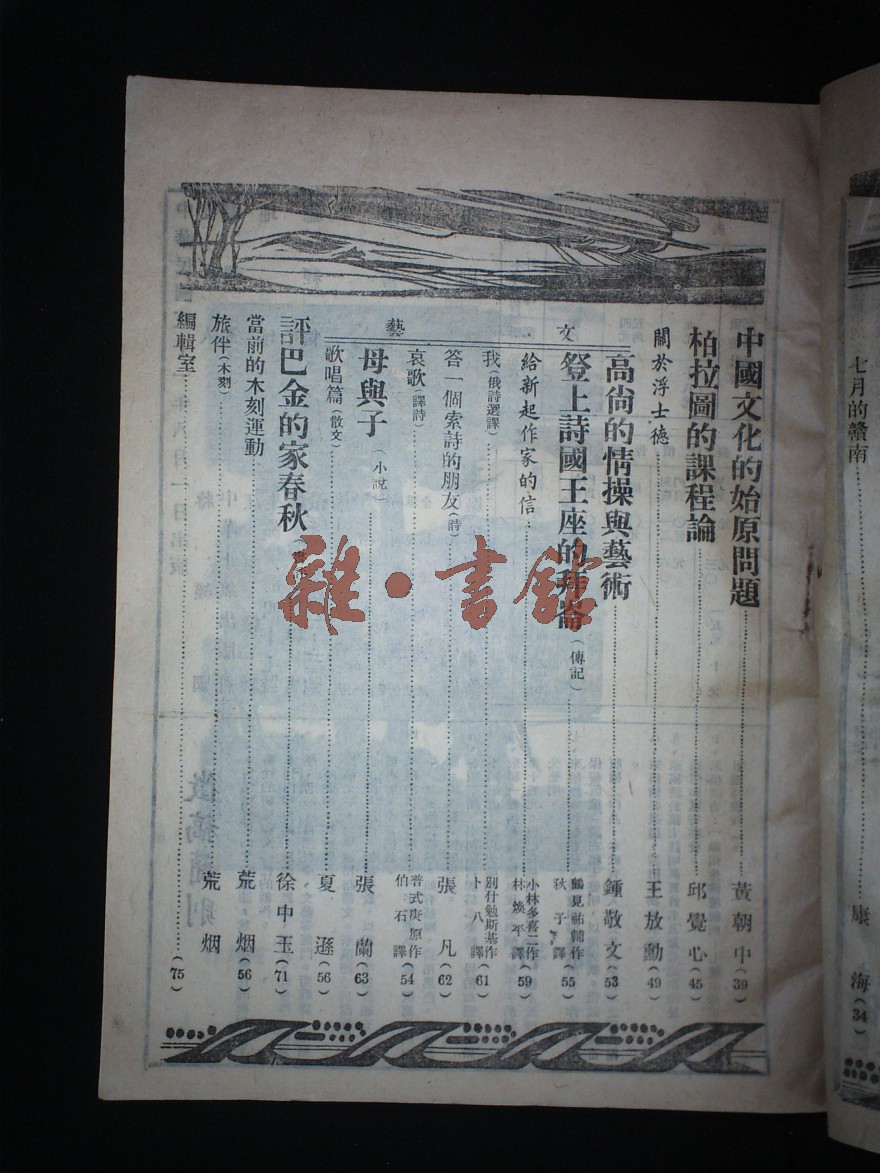 七月的贛南 康海(34)
中國文化的始原問題 黃朝中(39)
柏拉圖的課程論 邱覺心(45)
關於浮士德 王放勳(49)
高尙的情操與藝術 鍾敬文(53)
文藝
登上詩國王座的拜崙(傳記) 鶴見祐輔作 秋子譯(55)
給新起作家的信 小林多喜二作 林煥平譯(59)
我(俄詩選譯) 別什勉斯基作 卜八譯(61)
答一個索詩的朋友(詩) 張凡(62)
哀歌(譯詩) 普式庚原作 伯石譯(54)
母與子(小說) 張蘭(63)
歌唱篇(散文) 夏遜(56)
評巴金的家春秋 徐中玉(71)
當前的木刻運動 荒烟(56)
旅伴(木刻) 荒烟
編輯室 (75)
徵稿簡則
雜·書館